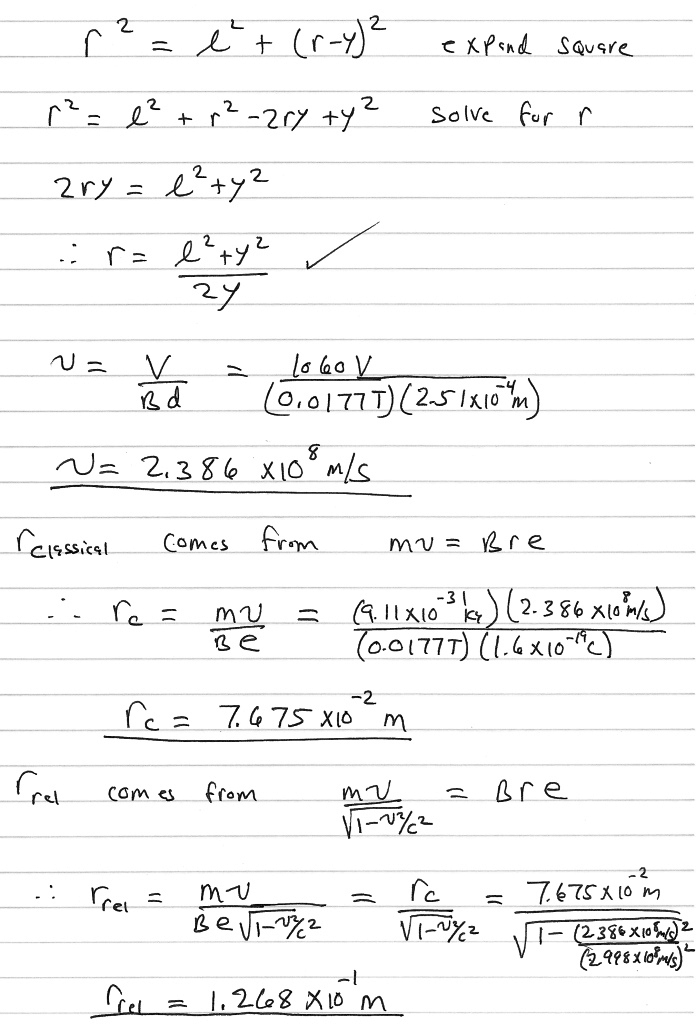 r² = l² + (r-y)² expand square
r² = l² + r² - 2ry + y² solve for r
2ry = l² + y²
∴ r = (l² + y²)/(2y) ✓
v = V/(Bd) = 1060 V/((0.0177T)(2.51x10⁻⁴m))
v = 2.386 x10⁸ m/s
r_classical comes from mv = Bre
∴ r_c = mv/(Be) = ((9.11x10⁻³¹kg)(2.386x10⁸m/s))/((0.0177T)(1.6x10⁻¹⁹C))
r_c = 7.675 x10⁻² m
r_rel comes from mv/√(1-v²/c²) = Bre
∴ r_rel = mv/(Be√(1-v²/c²)) = r_c/√(1-v²/c²) = 7.675x10⁻² m/√(1-(2.386x10⁸m/s)²/(2.998x10⁸m/s)²)
r_rel = 1.268 x10⁻¹ m